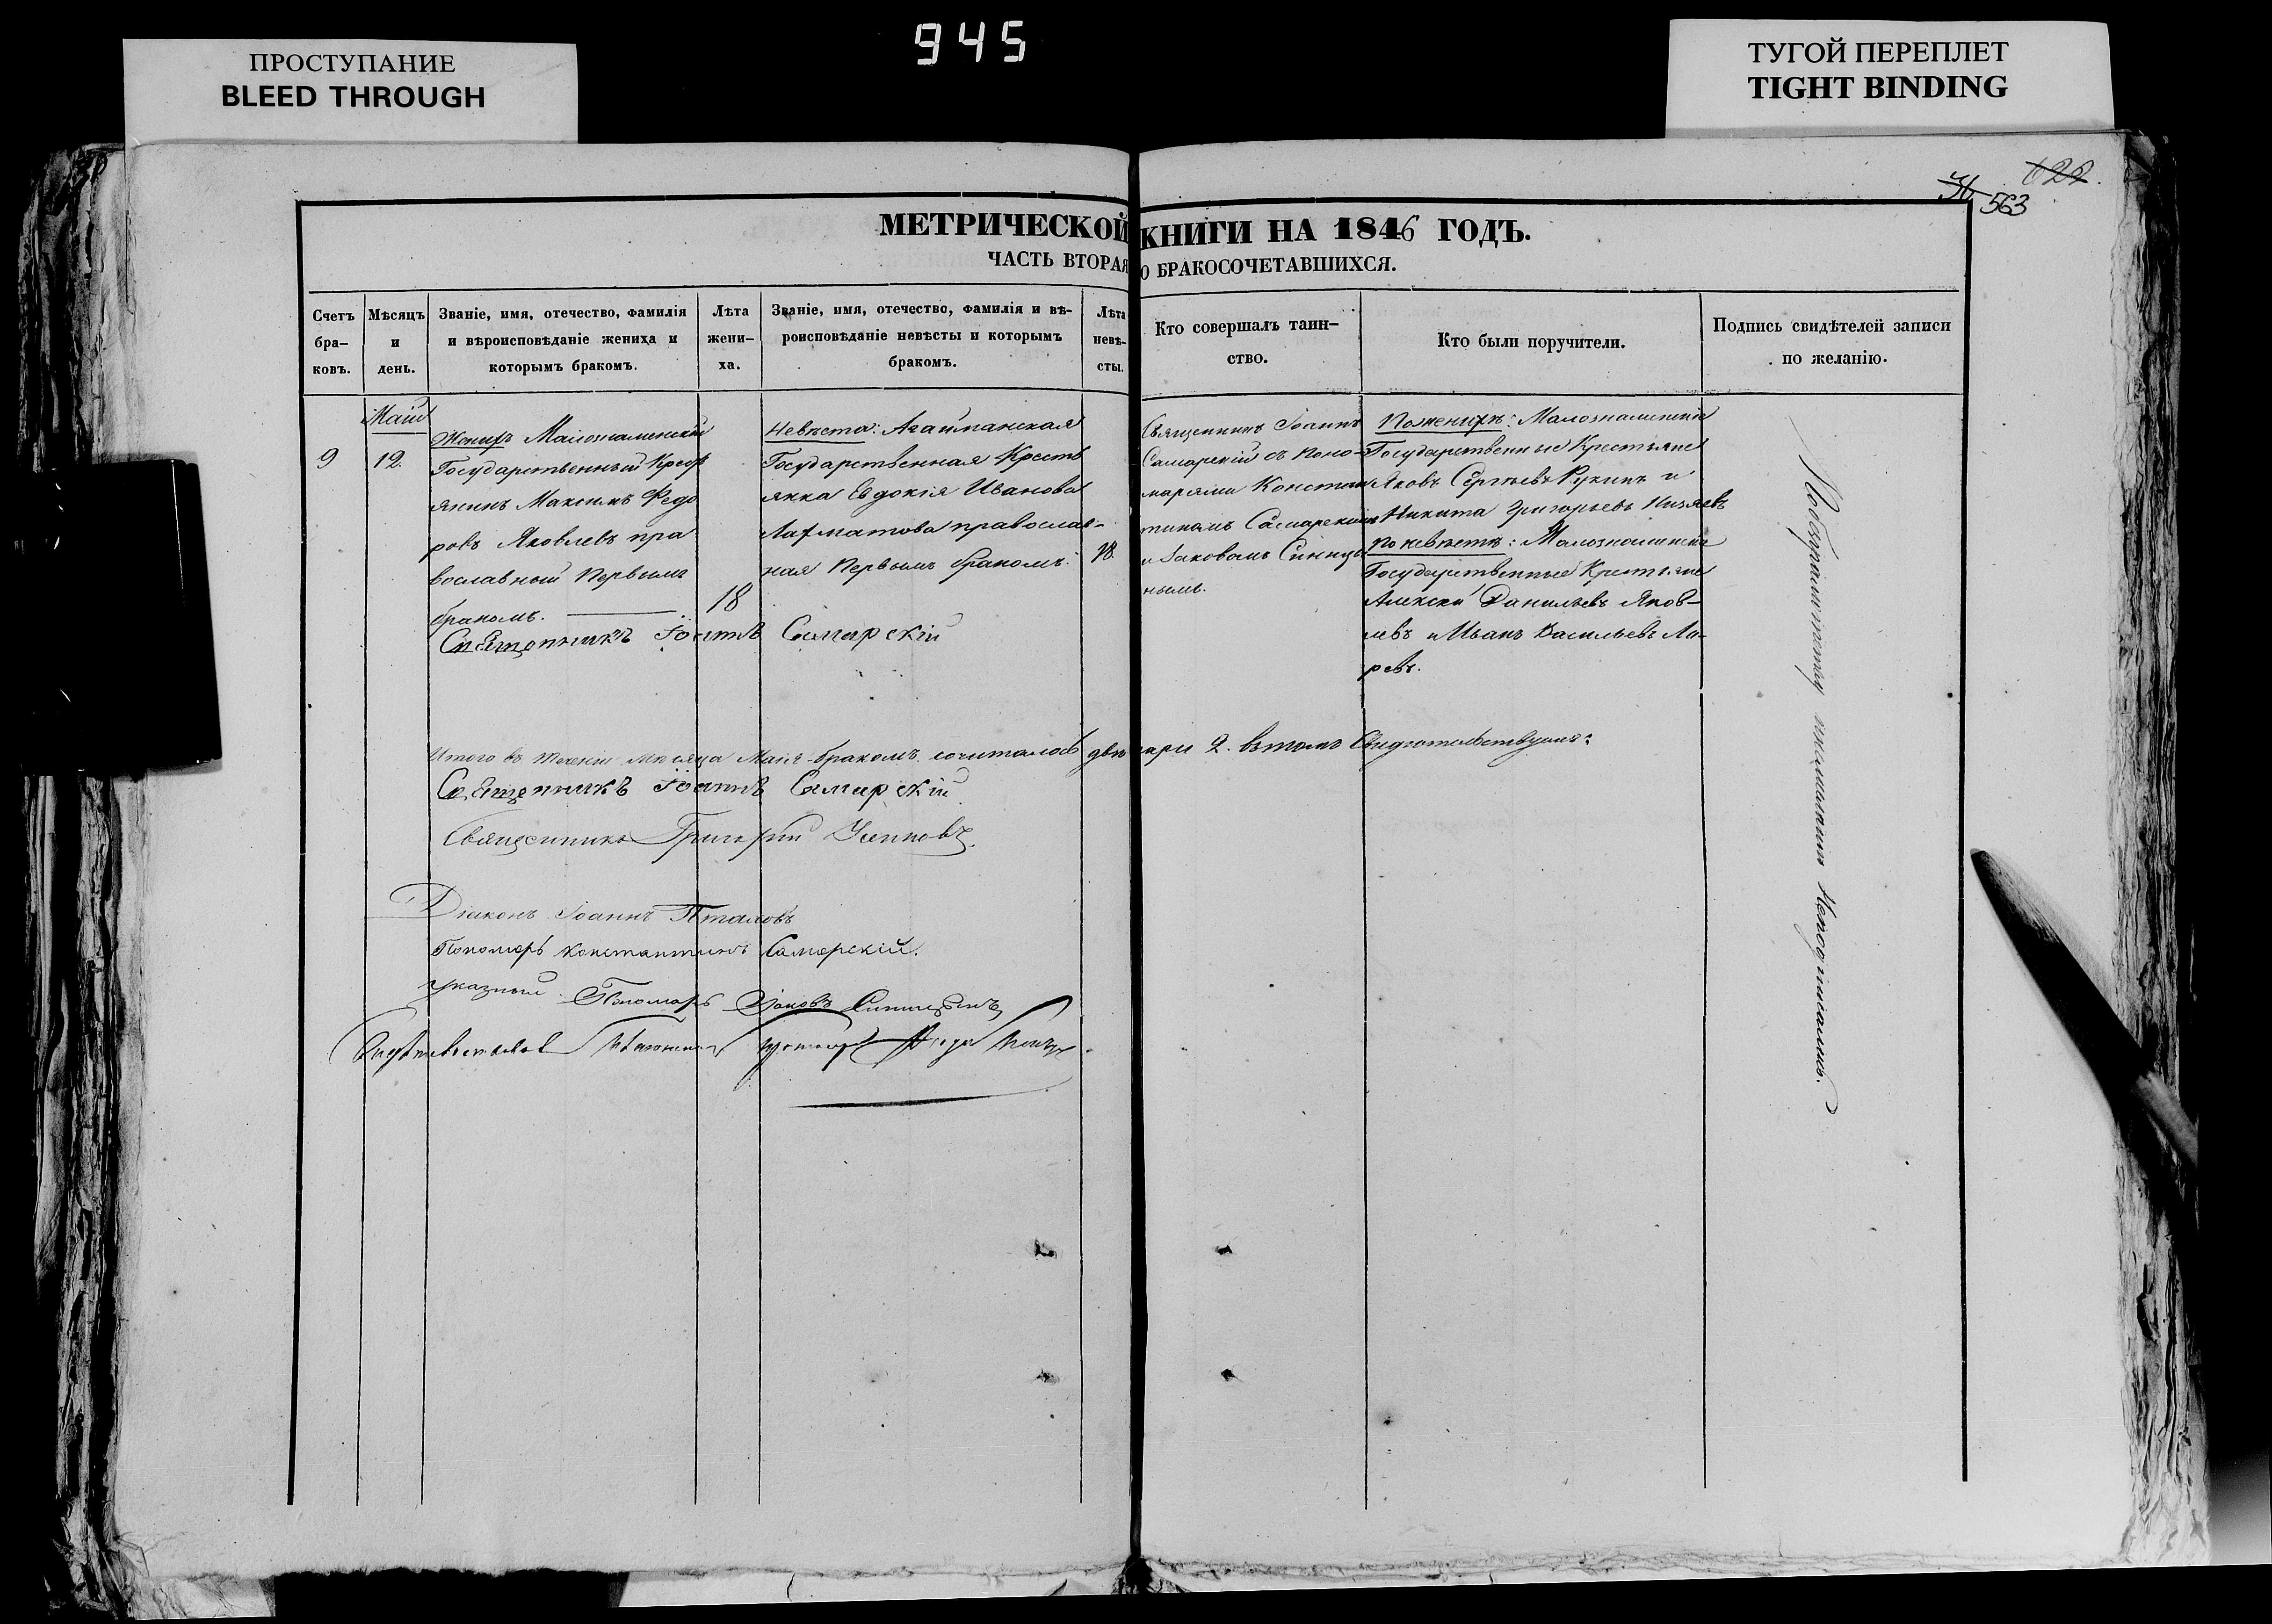 945
ПРОСТУПАНИЕ
BLEED THROUGH
ТУГОЙ ПЕРЕПЛЕТ
TIGHT BINDING
622.
563
МЕТРИЧЕСКОЙ КНИГИ НА 1846 ГОДЪ.
ЧАСТЬ ВТОРАЯ О БРАКОСОЧЕТАВШИХСЯ.
Счетъ бра- ковъ.
Мѣсяцъ и день.
Званіе, имя, отечество, фамилія и вѣроисповѣданіе жениха и которымъ бракомъ.
Лѣта жени- ха.
Званіе, имя, отечество, фамилія и вѣ- роисповѣданіе невѣсты и которымъ бракомъ.
Лѣта невѣ- сты.
Кто совершалъ таин- ство.
Кто были поручители.
Подпись свидѣтелей записи по желанію.
Маій
9
12.
Женихъ Малознаменскій
Государственный Крест
янинъ Максимъ Федо
ровъ Яковлевъ пра
вославный первымъ
бракомъ.
18
Невѣста: Агайманская
Государственная Кресть
янка Евдокія Иванова
Лахматова православ-
ная первымъ бракомъ.
18
Священникъ Іоаннъ
Самарскій съ Поно-
марями Констан
тиномъ Самарскимъ
и Іаковомъ Синицы
нымъ.
По женихѣ: Малознаменскіе
Государственные Крестьяне
Яковъ Сергѣевъ и
Никита Григорьевъ
По невѣстѣ: Малознаменскіе
Государственные Крестьяне
Алексѣй Данильевъ Яков-
левъ и Иванъ Васильевъ Ла-
ревъ.
Священникъ Іоаннъ Самарскій
Итого въ теченіи мѣсяца Маія бракомъ сочиталось двѣ пары 2. въ томъ Свидѣтельствуемъ:
Священникъ Іоаннъ Самарскій
Священникъ Григорій
Діаконъ Іоаннъ
Пономарь Константинъ Самарскій.
указный Пономарь Іаковъ Синицынъ